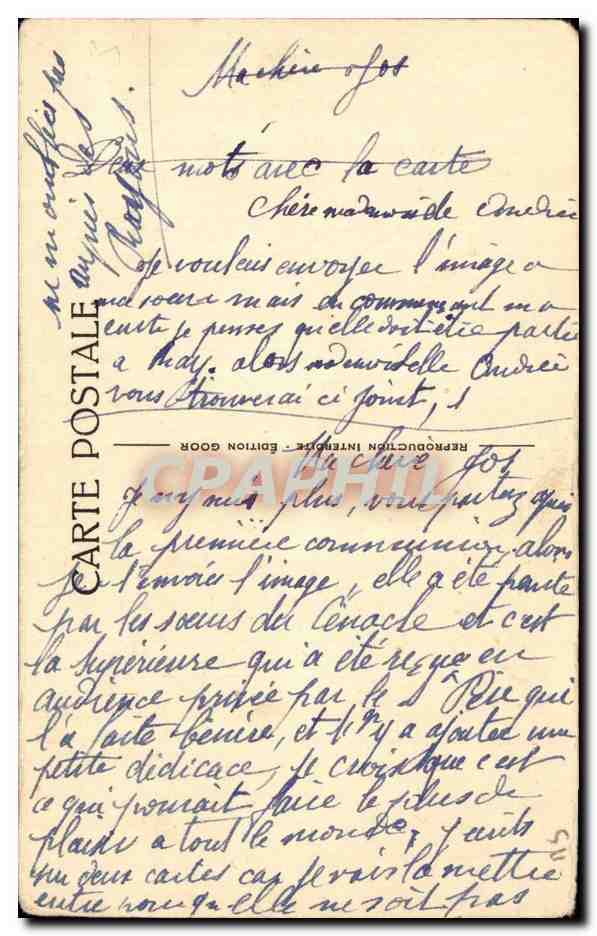 Ma chère Jos
Deux mots avec la carte
Chère mademoiselle Andrée
Je voulais envoyer l'image a
ma soeur mais en commençant ma
carte je penses qu'elle doit être partie
a Ray. alors mademoiselle Andrée
vous trouverai ci joint, 1
REPRODUCTION INTERDITE - ÉDITION GOOR
CARTE POSTALE
CPAPHIL
Ma chère Jos
Je n'y suis plus, vous partez
la première communion, alors
je l'envoies l'image, elle a été peinte
par les soeurs du Cénacle et c'est
la Supérieure qui a été reçue en
audience privée par le St Père qui
l'a faite bénire, et il y a ajouter une
petite dédicace, je crois que c'est
ce qui pourrait faire le plus de
plaisir a tout le monde, j'écris
sur deux cartes car je vais la mettre
entre pour qu'elle ne soit pas
ne m'oubliez pas
auprès des